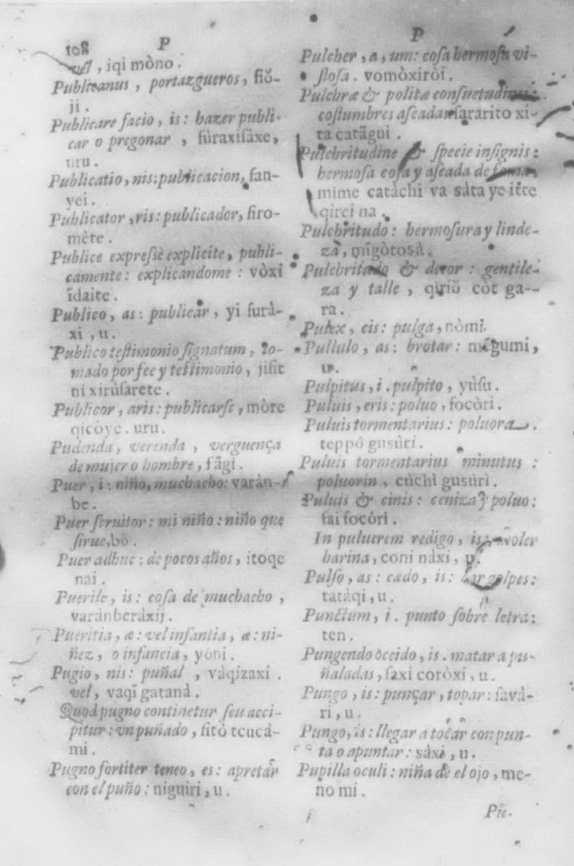 108 P
vel, iqi mòno.
Publicanus, portazgueros, fiŏ-
ji.
Publicare facio, is: hazer publi-
car o pregonar, furaxisaxe,
uru.
Publicatio, nis: publicacion, fan-
yei.
Publicator, ris: publicador, firo-
mète.
Publice expresse explicite, publi-
camente: explicandome: vòxi
idaite.
Publico, as: publicar, yi furà-
xi, u.
Publico testimonio signatum, to-
mado por fee y testimonio, jisit
ni xirùsarete.
Publicor, aris: publicarse, mòre
qicoye. uru.
Pudenda, verenda, verguença
de muger o hombre, fàgi.
Puer, i: niño, muchacho: varàn-
be.
Puer seruitor: mi niño: niño que
sirue, bò.
Puer adhuc: de pocos años, itoqe
nai.
Puerile, is: cosa de muchacho,
varanberàxij.
Pueritia, æ: vel infantia, æ: ni-
ñez, o infancia, yòni.
Pugio, nis: puñal, vàqizaxi.
vel, vaqi gatanà.
Quod pugno continetur seu acci-
pitur: vn puñado, fitò tcucà-
mi.
Pugno fortiter teneo, es: apretar
con el puño: niguiri, u.
P
Pulcher, a, um: cosa hermosa vi-
stosa. vomòxiròi.
Pulchræ & polita consuetudines:
costumbres aseadas: sararito xi-
ta catàgui.
Pulchritudine & specie insignis:
hermosa cosa y aseada de
mime catàchi va sàta ye ite
qirei na.
Pulchritudo: hermosura y linde-
za, migòtosa.
Pulchritudo & decor: gentile-
za y talle, qiriŏ còt ga-
ra.
Pulex, cis: pulga, nòmi.
Pullulo, as: brotar: mègumi,
u.
Pulpitus, i. pulpito, yùsu.
Puluis, eris: poluo, focòri.
Puluis tormentarius: poluora.
teppó gusùri.
Puluis tormentarius minutus:
poluorin, cùchi gusùri.
Puluis & cinis: ceniza y poluo:
fai focòri.
In puluerem redigo, is: voler
harina, coni nàxi, u.
Pulso, as: cædo, is: dar golpes:
tatàqi, u.
Punctum, i. punto sobre letra:
ten.
Pungendo occido, is. matar a pu-
ñaladas, saxi coròxi, u.
Pungo, is: punçar, topar: savà-
ri, u.
Pungo, is: llegar a tocar con pun-
ta o apuntar: sàxi, u.
Pupilla oculi: niña de el ojo, me-
no mi.
Pie.